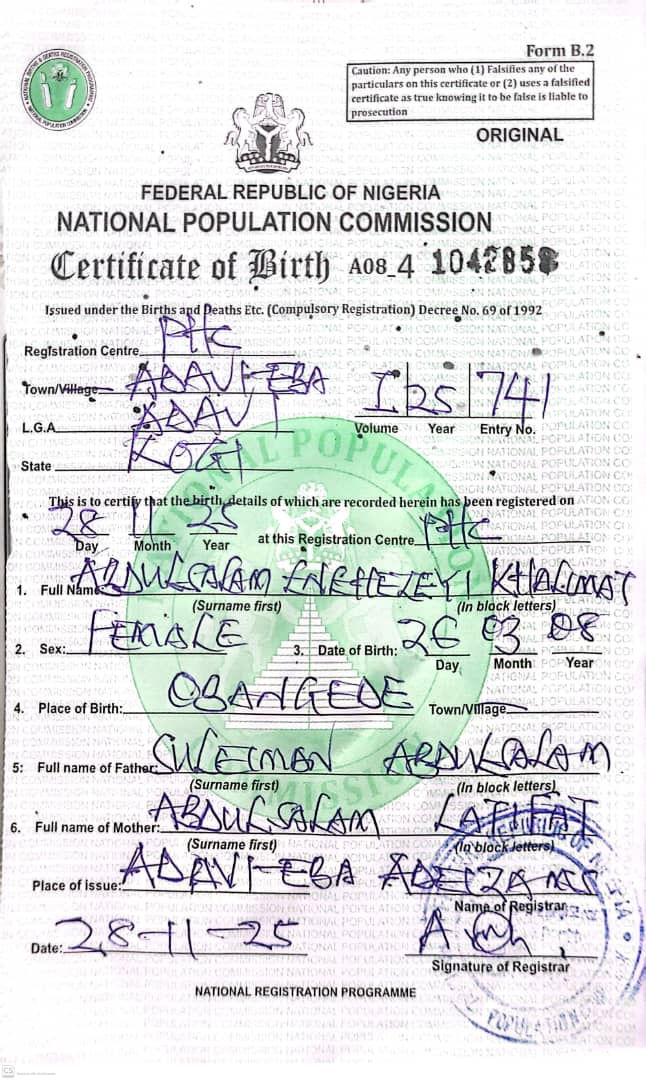 Form B.2
Caution: Any person who (1) Falsifies any of the
particulars on this certificate or (2) uses a falsified
certificate as true knowing it to be false is liable to
prosecution
ORIGINAL
FEDERAL REPUBLIC OF NIGERIA
NATIONAL POPULATION COMMISSION
Certificate of Birth A08_4 1042858
Issued under the Births and Deaths Etc. (Compulsory Registration) Decree No. 69 of 1992
Registration Centre PHC
Town/Village ADAVI-EBA
L.G.A ADAVI
State KOGI
I 25 741
Volume Year Entry No.
This is to certify that the birth, details of which are recorded herein has been registered on
28 11 25 at this Registration Centre PHC
Day Month Year
1. Full Name ABDULSALAM ENEHEZEYI KHALIMAT
(Surname first) (In block letters)
2. Sex: FEMALE 3. Date of Birth: 26 03 08
Day Month Year
4. Place of Birth: OBANGEDE Town/Village
5: Full name of Father: SULEIMAN ABDULSALAM
(Surname first) (In block letters)
6. Full name of Mother: ABDULSALAM LATIFAT
(Surname first) (In block letters)
Place of issue: ADAVI-EBA
Name of Registrar
Date: 28-11-25
Signature of Registrar
NATIONAL REGISTRATION PROGRAMME
POPULATION
CS